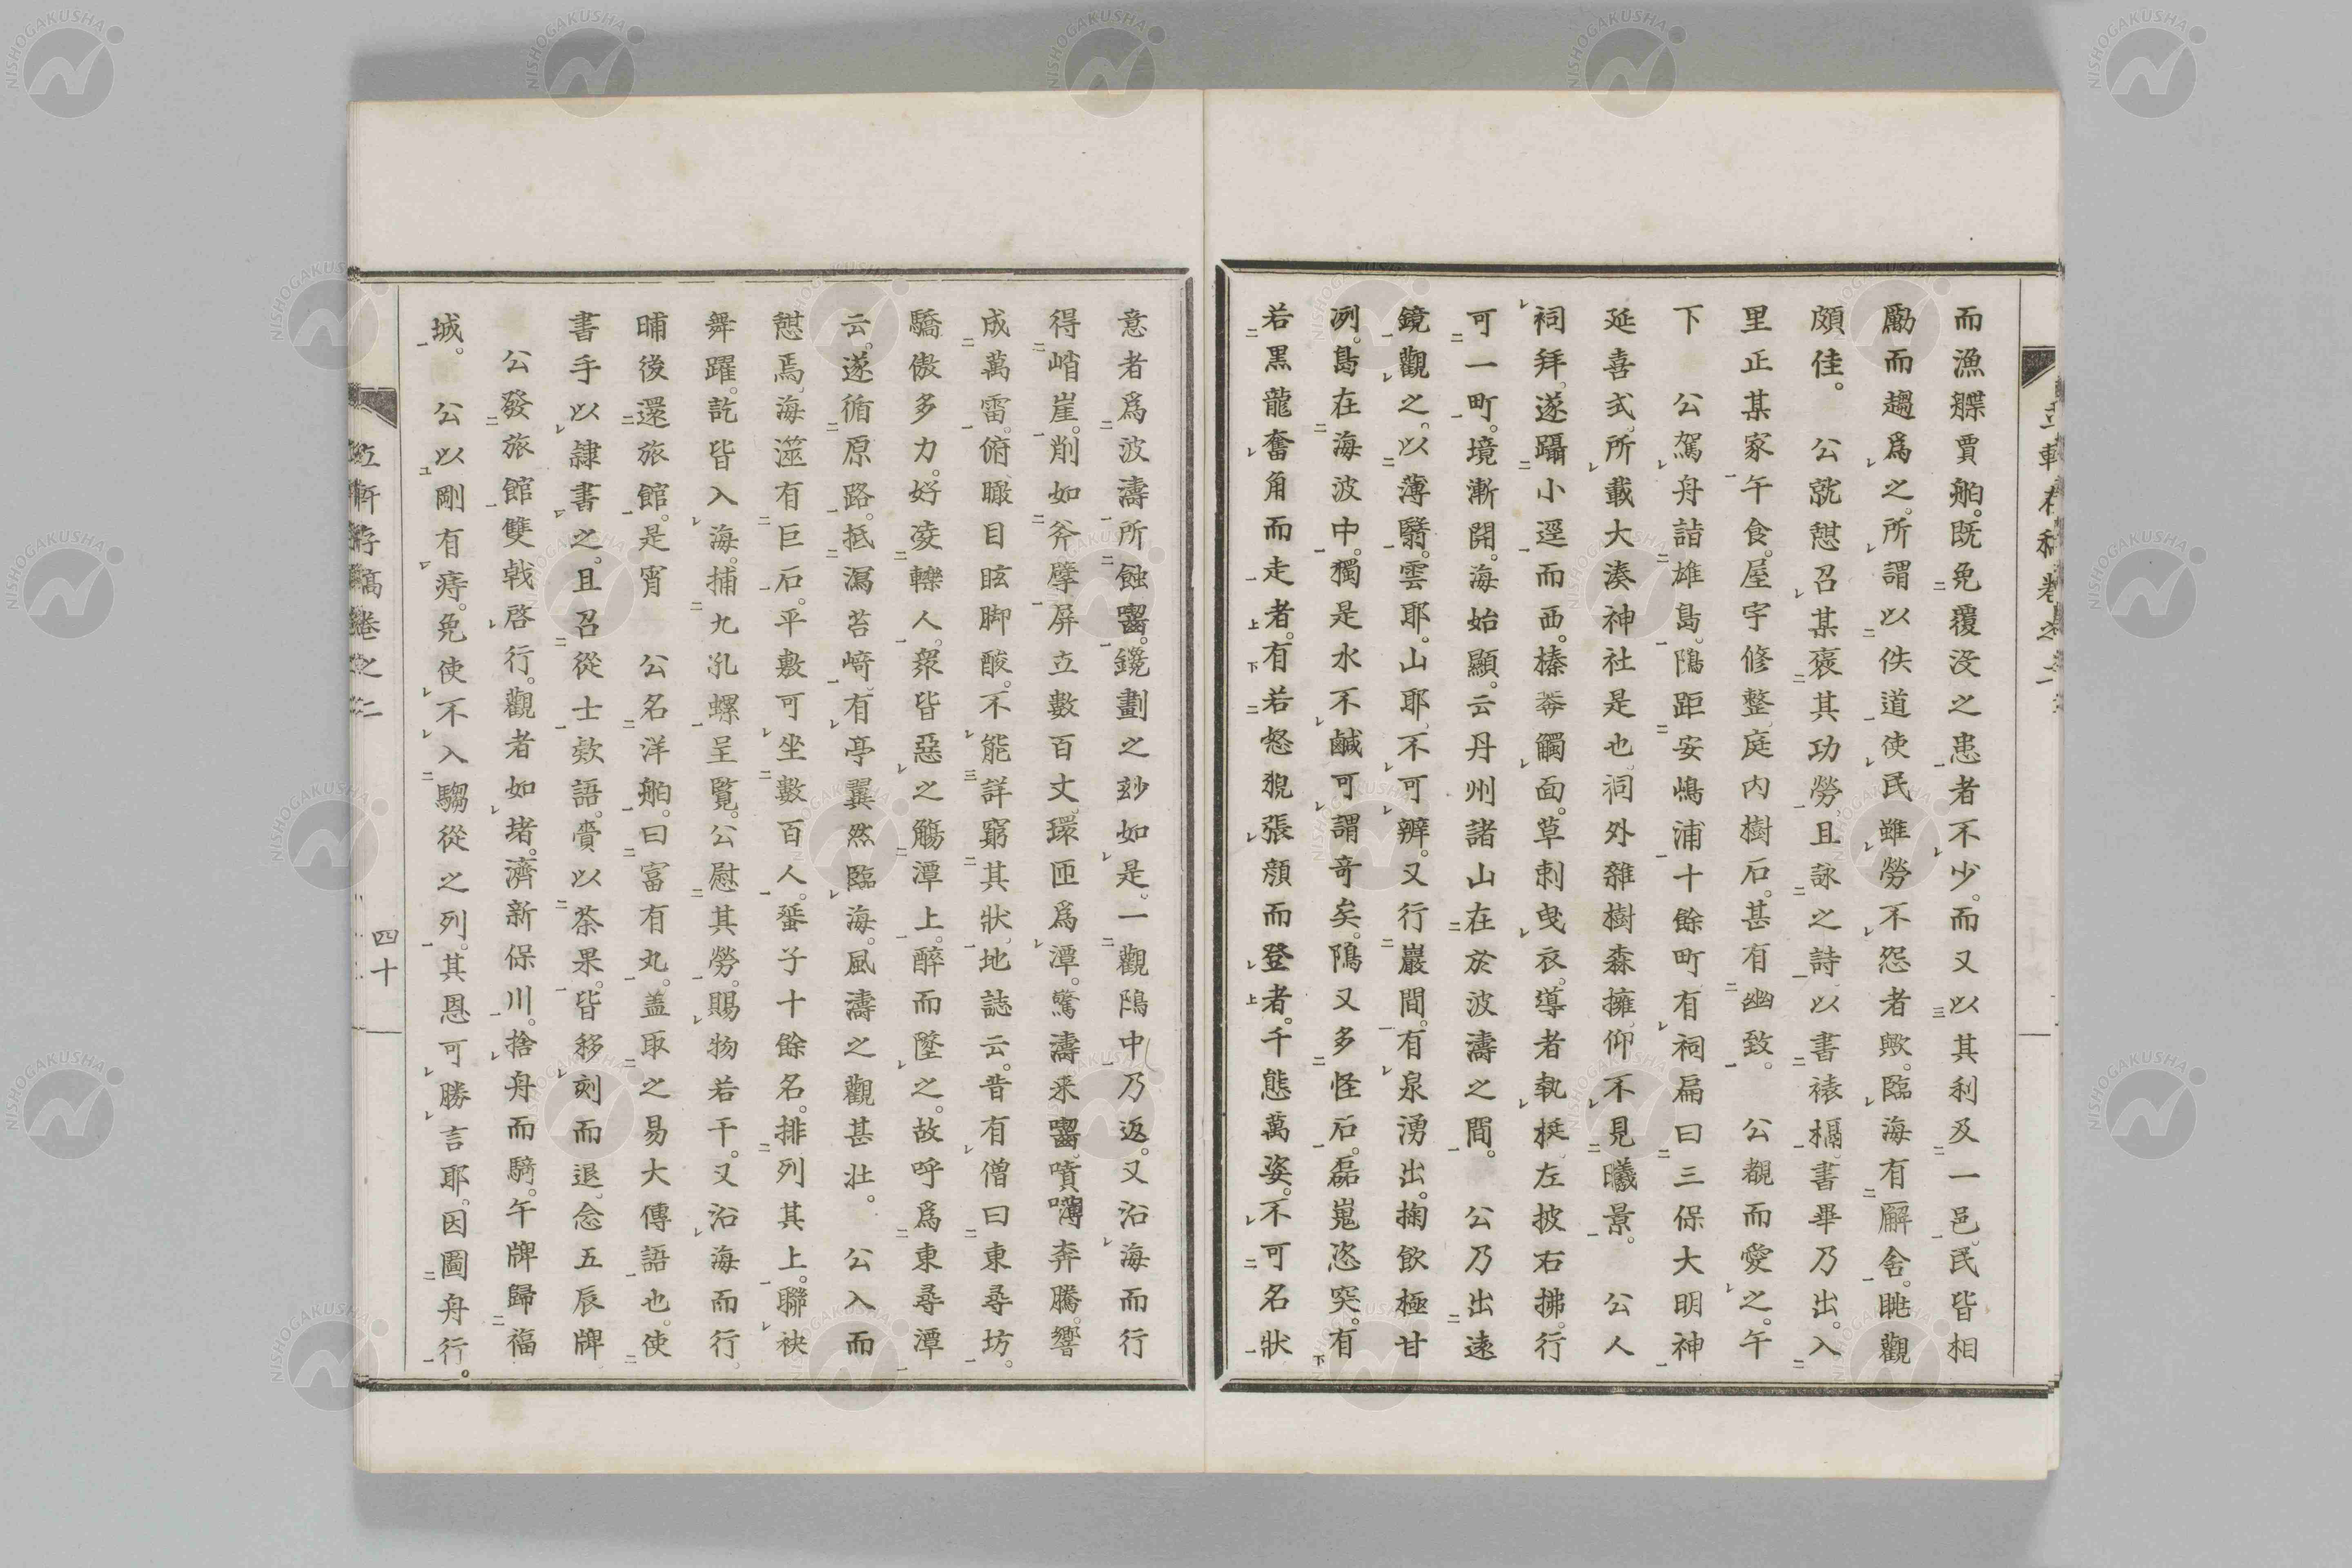 而漁艓賈舶。既免覆没之患者不少。而又以其利及一邑。民皆相
勵而趨爲之。所謂以佚道使民雖勞不怨者歟。臨海有廨舍。眺觀
頗佳。 公就憇召某褒其功勞。且詠之詩以書裱槅。書畢乃出。入
里正某家午食。屋宇修整。庭内樹石。甚有幽致。 公覩而愛之。午
下 公駕舟詣雄島。隝距安嶋浦十餘町有祠扁曰三保大明神
延喜式。所載大湊神社是也。祠外雜樹森擁。仰不見曦景。 公人
祠拜。遂躡小逕而西。榛莽觸面。草刺曳衣。導者執梃。左披右拂。行
可一町。境漸開。海始顯。云丹州諸山在於波濤之間。 公乃出遠
鏡觀之。以薄翳。雲耶。山耶。不可辨。又行巖間。有泉湧出。掬飲極甘
洌。島在海波中。獨是水不鹹可謂竒矣。隝又多怪石。磊嵬恣突。有
若黒龍奮角而走者。有若怒猊張顔而登者。千態萬姿。不可名状
意者爲波濤所蝕齧。鑱劃之玅如是。一觀隝中乃返。又沿海而行
得峭崖。削如斧擘屏立數百丈。環匝爲潭。驚濤来齧。噴薄奔騰。響
成萬雷。俯瞰目眩脚酸。不能詳窮其狀。地誌云。昔有僧曰東尋坊。
驕傲多力。好凌轢人。衆皆惡之觴潭上。醉而墜之。故呼爲東尋潭
云。遂循原路。抵瀉苔﨑。有亭翼然臨海。風濤之觀甚壮。 公入而
憇焉。海澨有巨石。平敷可坐數百人。蜑子十餘名。排列其上。聯袂
舞躍。訖皆入海。捕九孔螺呈覧。公慰其勞。賜物若干。又沿海而行
晡後還旅館。是宵 公名洋舶。曰富有丸。盖取之易大傳語也。使
書手以隷書之。且召從士欸語。賫以茶果。皆移刻而退。念五辰牌
公發旅館雙戟啓行。觀者如堵。濟新保川。捨舟而騎。午牌歸福
城。 公以剛有痔。免使不入騶從之列。其恩可勝言耶。因圖舟行。
四十